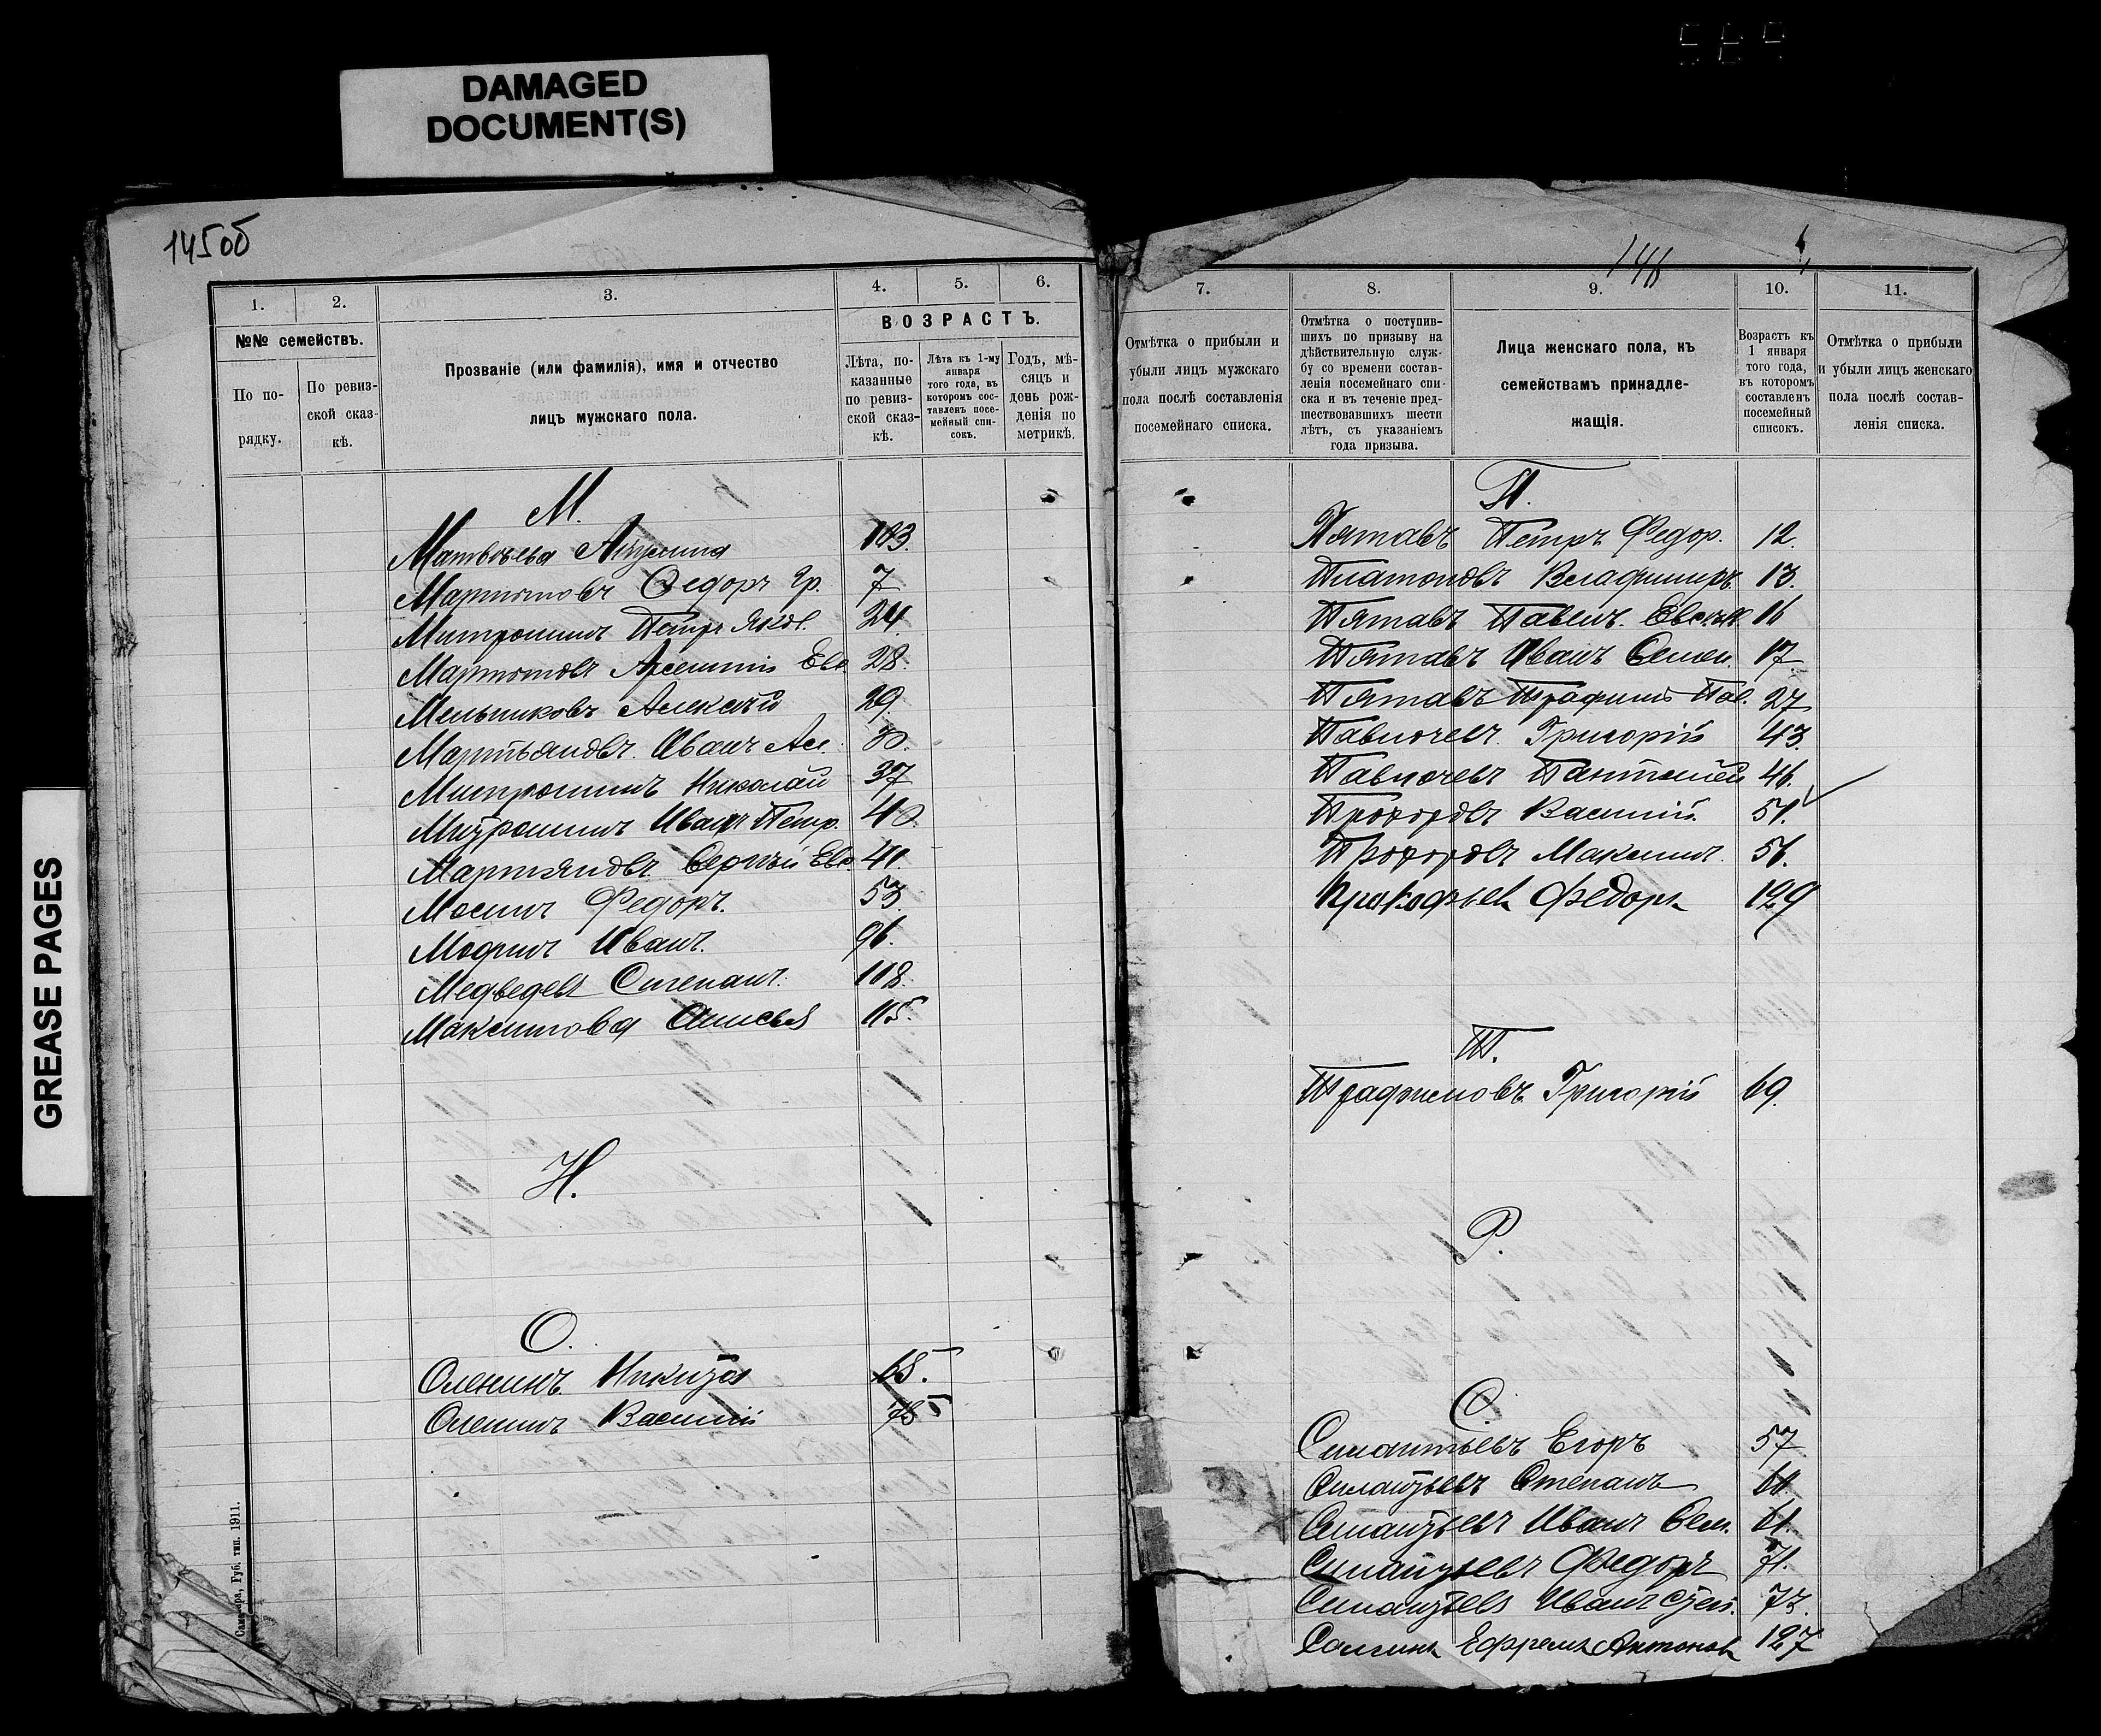 DAMAGED
DOCUMENT(S)
GREASE PAGES
145об
1.
2.
3.
4.
5.
6.
№№ семействъ.
По по-
рядку.
По ревиз-
ской сказ-
кѣ.
Прозваніе (или фамилія), имя и отчество
лицъ мужскаго пола.
ВОЗРАСТЪ.
Лѣта, по-
казанные
по ревиз-
ской сказ-
кѣ.
Лѣта къ 1-му
января
того года, въ
которомъ сос-
тавленъ посе-
мейный спи-
сокъ.
Годъ, мѣ-
сяцъ и
день рож-
денія по
метрикѣ.
М.
Матвѣева 103.
Мартыновъ Федоръ Гр. 7
Митрошинъ Петръ Яков. 24.
Мартыновъ Арсентій Евс. 28.
Мельниковъ Алексѣй 29.
Мартьяновъ Иванъ Ал. 30.
Митрошинъ Николай 37
Митрошинъ Иванъ Петр. 40.
Мартяновъ Сергѣй Евс. 41
Мосинъ Федоръ. 53.
Иванъ. 96.
Медведевъ Степанъ. 108.
Максимова Анисья 115.
Н.
О.
Оленинъ Никита 65.
Оленинъ Василій 75
Самара, Губ. тип. 1911.
146
7.
8.
9.
10.
11.
Отмѣтка о прибыли и
убыли лицъ мужскаго
пола послѣ составленія
посемейнаго списка.
Отмѣтка о поступив-
шихъ по призыву на
дѣйствительную служ-
бу со времени состав-
ленія посемейнаго спи-
ска и въ теченіе пред-
шествовавшихъ шести
лѣтъ, съ указаніемъ
года призыва.
Лица женскаго пола, къ
семействамъ принадле-
жащія.
Возрастъ къ
1 января
того года,
въ которомъ
составленъ
посемейный
списокъ.
Отмѣтка о прибыли
и убыли лицъ женскаго
пола послѣ состав-
ленія списка.
П.
Пятавъ Петръ Федор. 12.
Платоновъ Владимиръ. 13.
Пятавъ Павелъ. 16
Пятавъ Иванъ Семен. 17
Пятавъ Трафимъ Пав. 27
Павлочевъ Григорій 43.
Павлочевъ Пантелей 46.
Прохоровъ Василій. 51.
Прохоровъ Максимъ. 56.
Прокофьевъ Федоръ 129
Т.
Трафимовъ Григорій 69.
Р.
С.
Силантьевъ Егоръ 57
Силантьевъ Степанъ 60.
Силантьевъ Иванъ Сем. 61.
Силантьевъ Федоръ 71.
Силантьевъ Иванъ Степ. 73.
Ефремъ Антоновъ 127